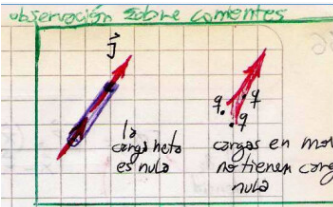 observación sobre corrientes
J
la
carga neta
es nula
q q
q
cargas en mov
no tienen carg
nula